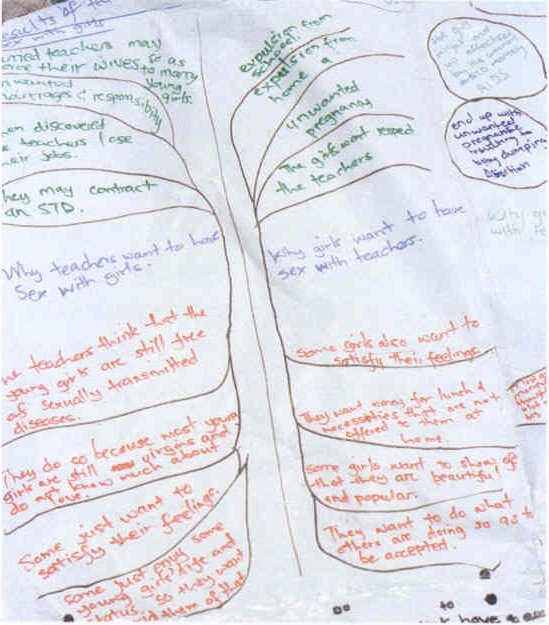 results of
sex with girls
teachers may
their wives so as
to marry
unwanted young
& responsibility girls.
when discovered
teachers lose
their jobs.
They may contract
an STD.
Why teachers want to have
sex with girls.
teachers think that the
young girls are still free
of sexually transmitted
diseases.
They do so because most young
girls are still virgins and
do not know much about
love.
Some just want to
satisfy their feelings.
some just enjoy some
young girls life and
so they want
them of that
expulsion from
school.
expulsion from
home
unwanted
pregnancy.
The girls wont respect
the teachers
Why girls want to have
sex with teachers.
Some girls also want to
satisfy their feelings
They want money for lunch &
necessities that are not
offered to them at
home.
some girls want to show off
that they are beautiful
and popular.
They want to do what
others are doing so as to
be accepted.
AIDS
end up with
unwanted
pregnancies
resulting in
baby dumping
abortion
why gi
with te
to
have to